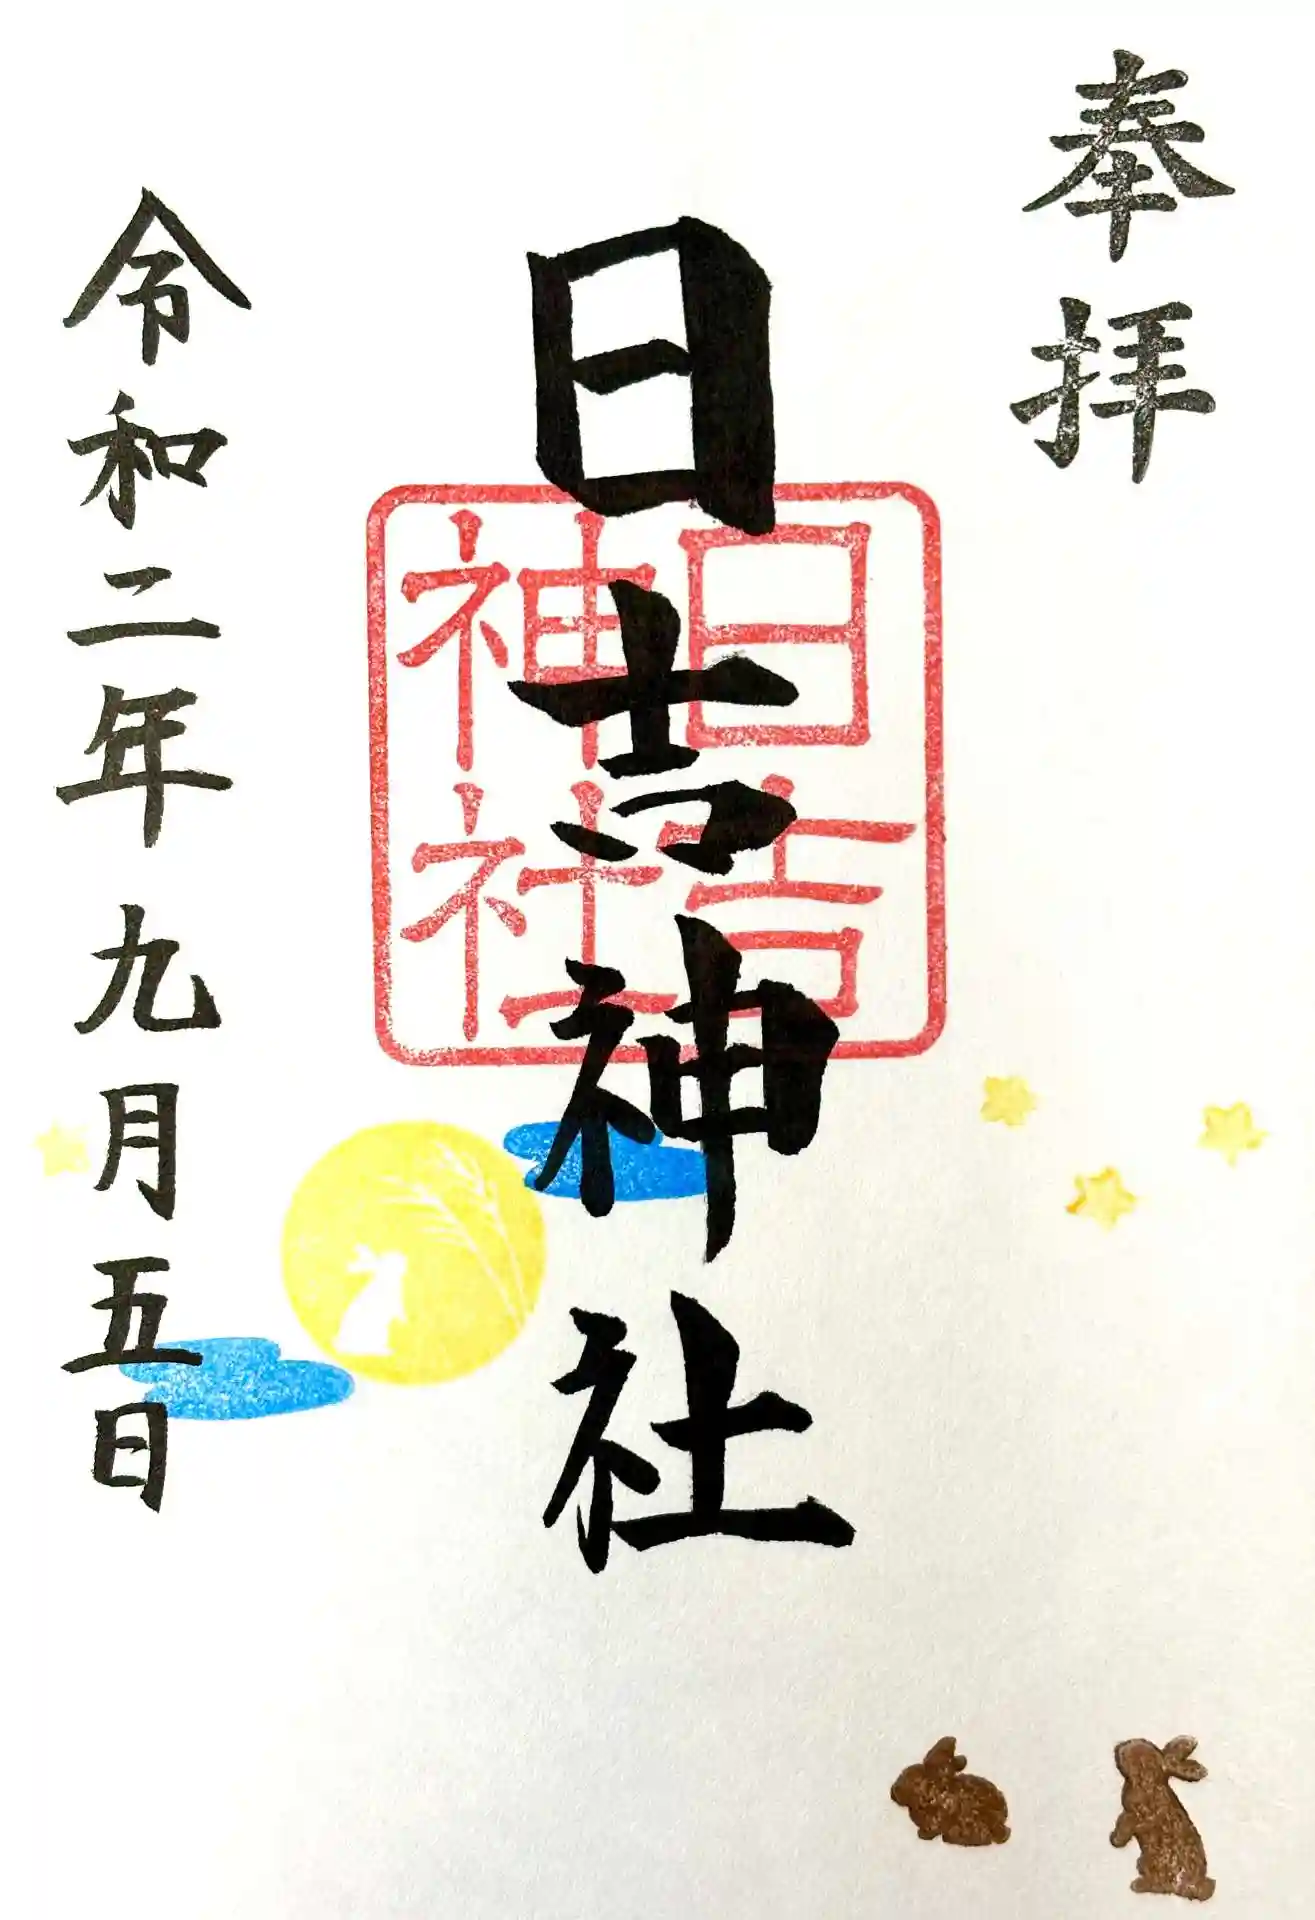 奉拝
日吉神社
日吉
神社
令和二年九月五日